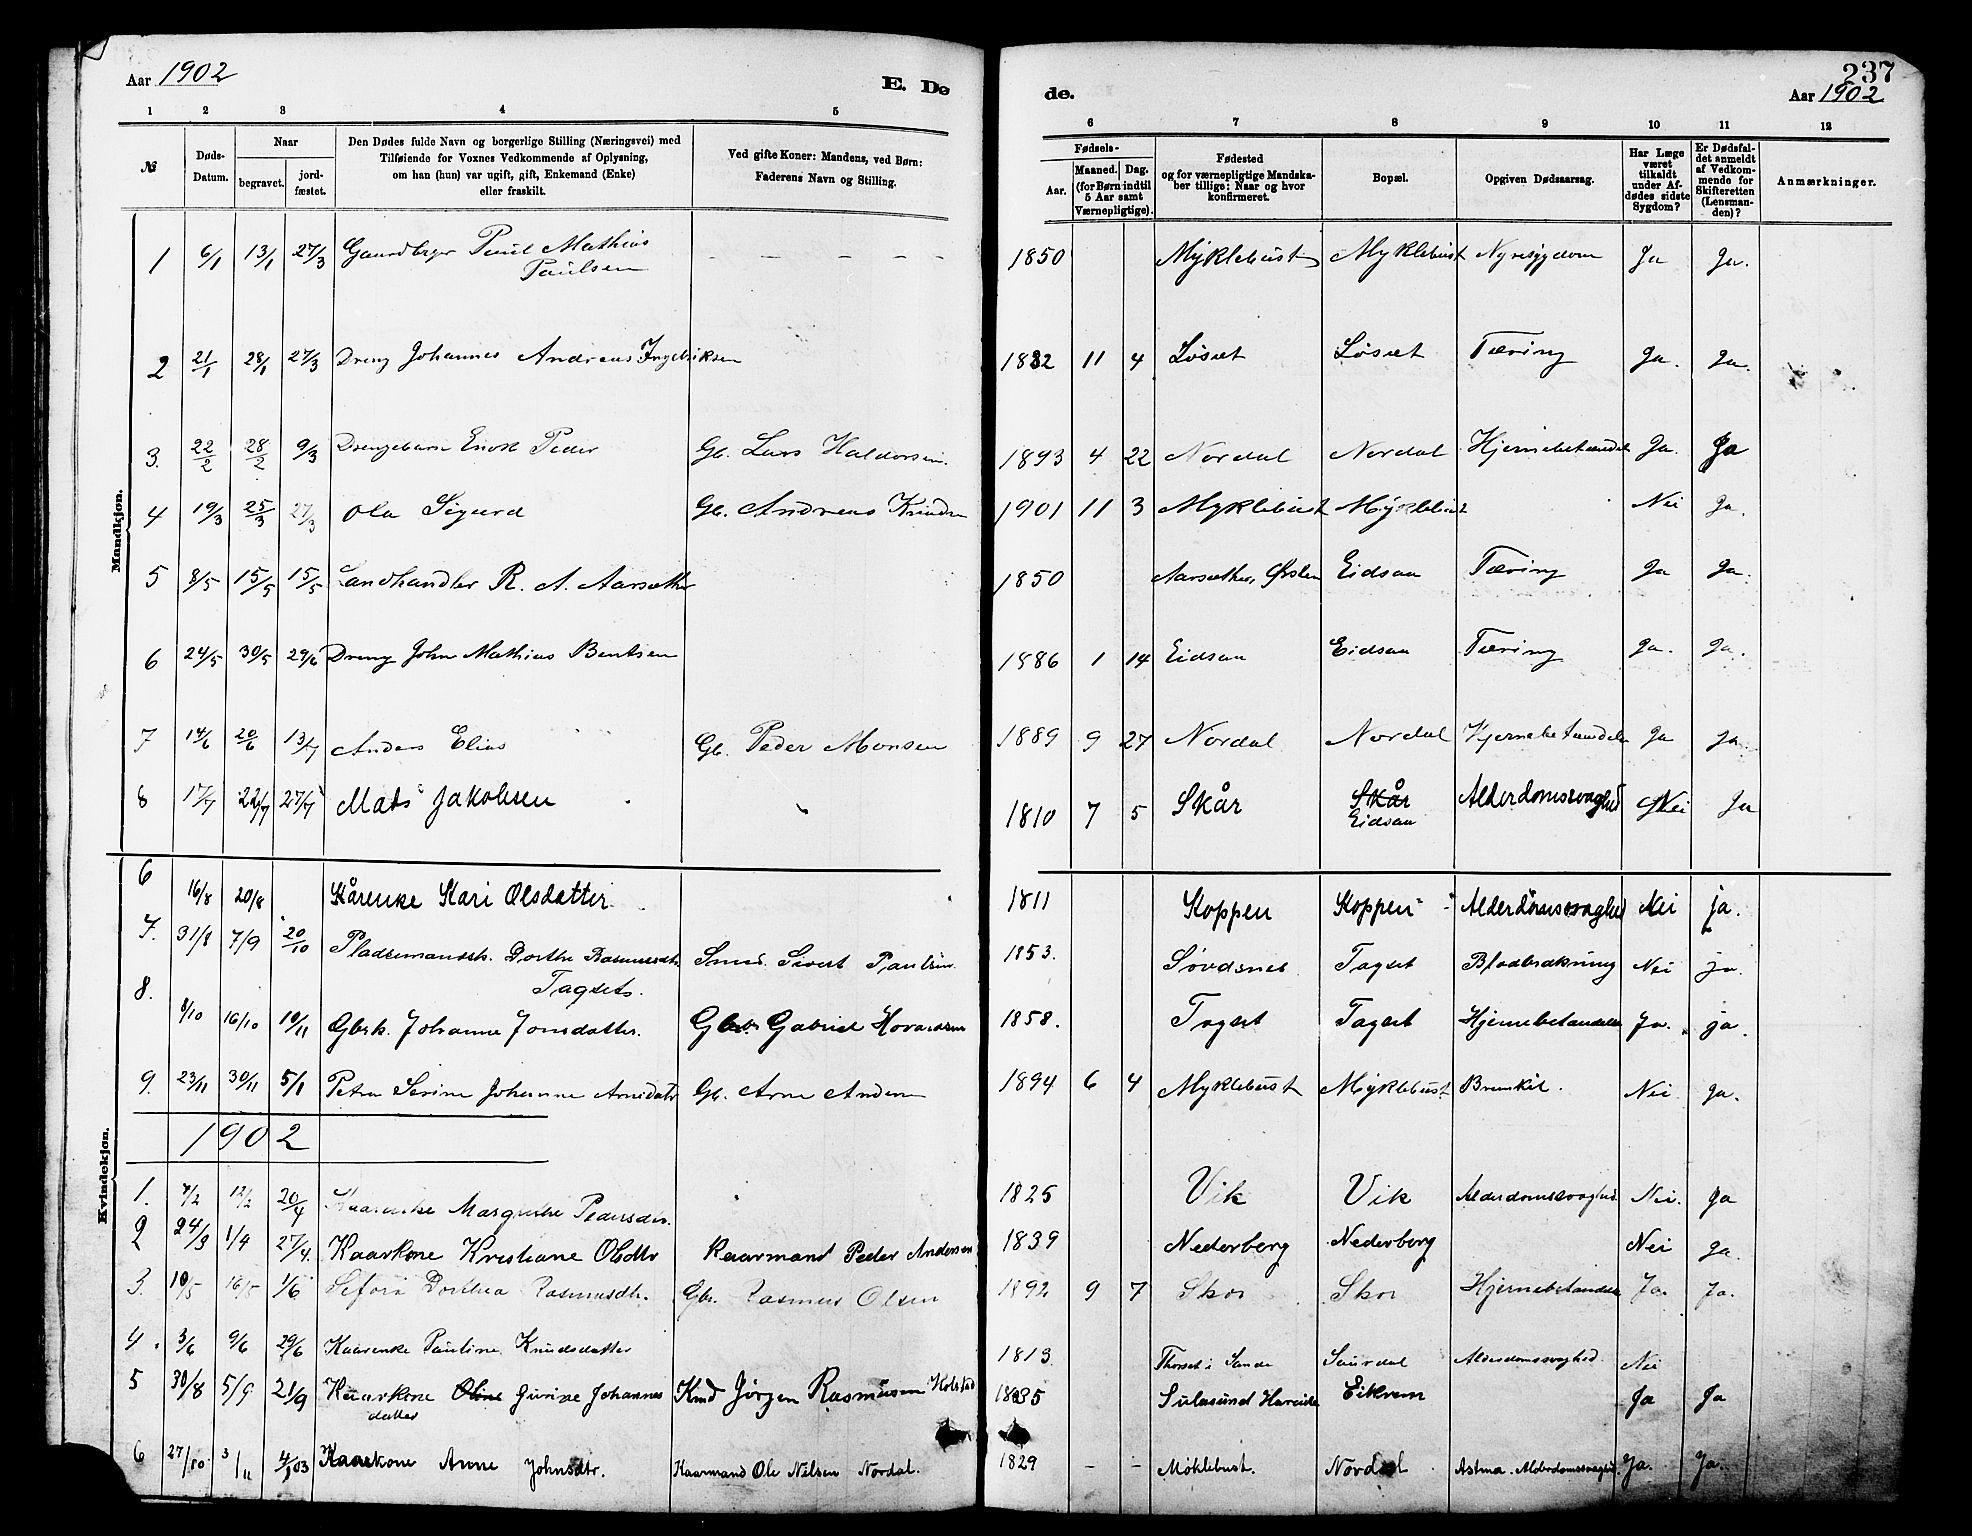 Aar 1902
E. Dø
de.
237
Aar 1902
1 2 3 4 5
6 7 8 9 10 11 12
№
Døds-Datum.
Naar
begravet.
jord-fæstet.
Den Dødes fulde Navn og borgerlige Stilling (Næringsvei) med
Tilføiende for Voxnes Vedkommende af Oplysning,
om han (hun) var ugift, gift, Enkemand (Enke)
eller fraskilt.
Ved gifte Koner: Mandens, ved Børn:
Faderens Navn og Stilling.
Fødsels-
Aar.
Maaned. Dag.
(for Børn indtil
5 Aar samt
Værnepligtige).
Fødested
og for værnepligtige Mandska-
ber tillige: Naar og hvor
konfirmeret.
Bopæl.
Opgiven Dødsaarsag.
Har Læge
været
tilkaldt
under Af-
dødes sidste
Sygdom?
Er Dødsfal-
det anmeldt
af Vedkom-
mende for
Skifteretten
(Lensman-
den)?
Anmærkninger.
Mandkjøn.
1 6/1 13/1 27/3 Gaardbrger Paul Mathias Paulsen – – – – – 1850 Myklebust Myklebust Nyresygdom Ja Ja.
2 21/1 28/1 27/3 Dreng Johannes Andreas Ingebriksen 1882 11 4 Løset Løset Tæring Ja. Ja.
3. 22/2 28/2 9/3 Drengebarn Enok Peder Gb. Lars Haldorsen. 1893 4 22 Nordal Nordal Hjernebetændel Ja. Ja
4 19/3 25/3 27/3 Ola Sigurd Gb. Andreas 1901 11 3 Myklebust Myklebust Nei Ja.
5 8/5 15/5 15/5 Landhandler R. A. Aarsæther 1850 Aarsæther, Ørsten Eidsaa Tæring Ja Ja.
6 24/5 30/5 29/6 Dreng John Mathias Bentsen 1886 1 14 Eidsaa Eidsaa Tæring Ja. Ja.
7 14/6 20/6 13/7 Anders Elias Gb. Peder Monsen 1889 9 27 Nordal Nordal Hjernebetændele Ja Ja
8 17/7 22/7 27/7 Mats Jakobsen 1810 7 5 Skår Skår Alderdomssvaghed Nei Ja
Eidsaa
Kvindekjøn.
6 16/8 20/8 Kårenke Kari Olsdatter. 1811 Koppen Koppen Alderdomssvaghed Nei ja.
7. 31/8 7/9 20/10 Pladsemandsk. Dorthe Rasmusdtr. Smed. Sivert Paulsen. 1853. Søvdsnes Tagset Blodbrækning Nei ja.
Tagsets.
8. 8/10 16/10 10/11 Gbrk. Johanne Jonsdatter. Gbr. Gabriel 1858. Tagset Tagset Hjernebetændelse Ja. ja.
9. 23/11 30/11 5/1 Petra Serine Johanne Arnsdatr Gb. Arne Andersen 1894 6 4 Myklebust Myklebust Nei Ja.
1902
1. 7/2 12/2 20/4 Kaarenke Margrethe Pedersdtr. 1825 Vik Vik Alderdomssvaghed. Nei. Ja
2 24/3 1/4 27/4. Kaarkone Kristiane Olsdtr Kaarmand Peder Andersen 1839 Nederberg Nederberg Nei Ja.
3. 10/5 16/5 1/6 Sefora Dorthea Rasmusdtr. Gbr. Rasmus Olsen 1892 9 7 Skor Skor Hjernebetændelse Ja. Ja.
4. 3/6 9/6 29/6 Kaarenke Pauline Knudsdatter 1813. Thorset i Sande Saurdal Alderdomssvaghed. Nei
5 30/8 5/9 21/9 Kaarkone Oline Gurine Johannes Kmd Jörgen Rasmusen Holstad 1835 Sulesund Hareide Eikrem Ja Ja
datter
6 27/10. 3/11 4/1 03 Kaarkone Anne Johnsdtr. Kaarmand Ole Nilsen Nordal. 1829 – – Møklebust. Nordal Astma. Alderdomssvaghed. Ja. Ja.